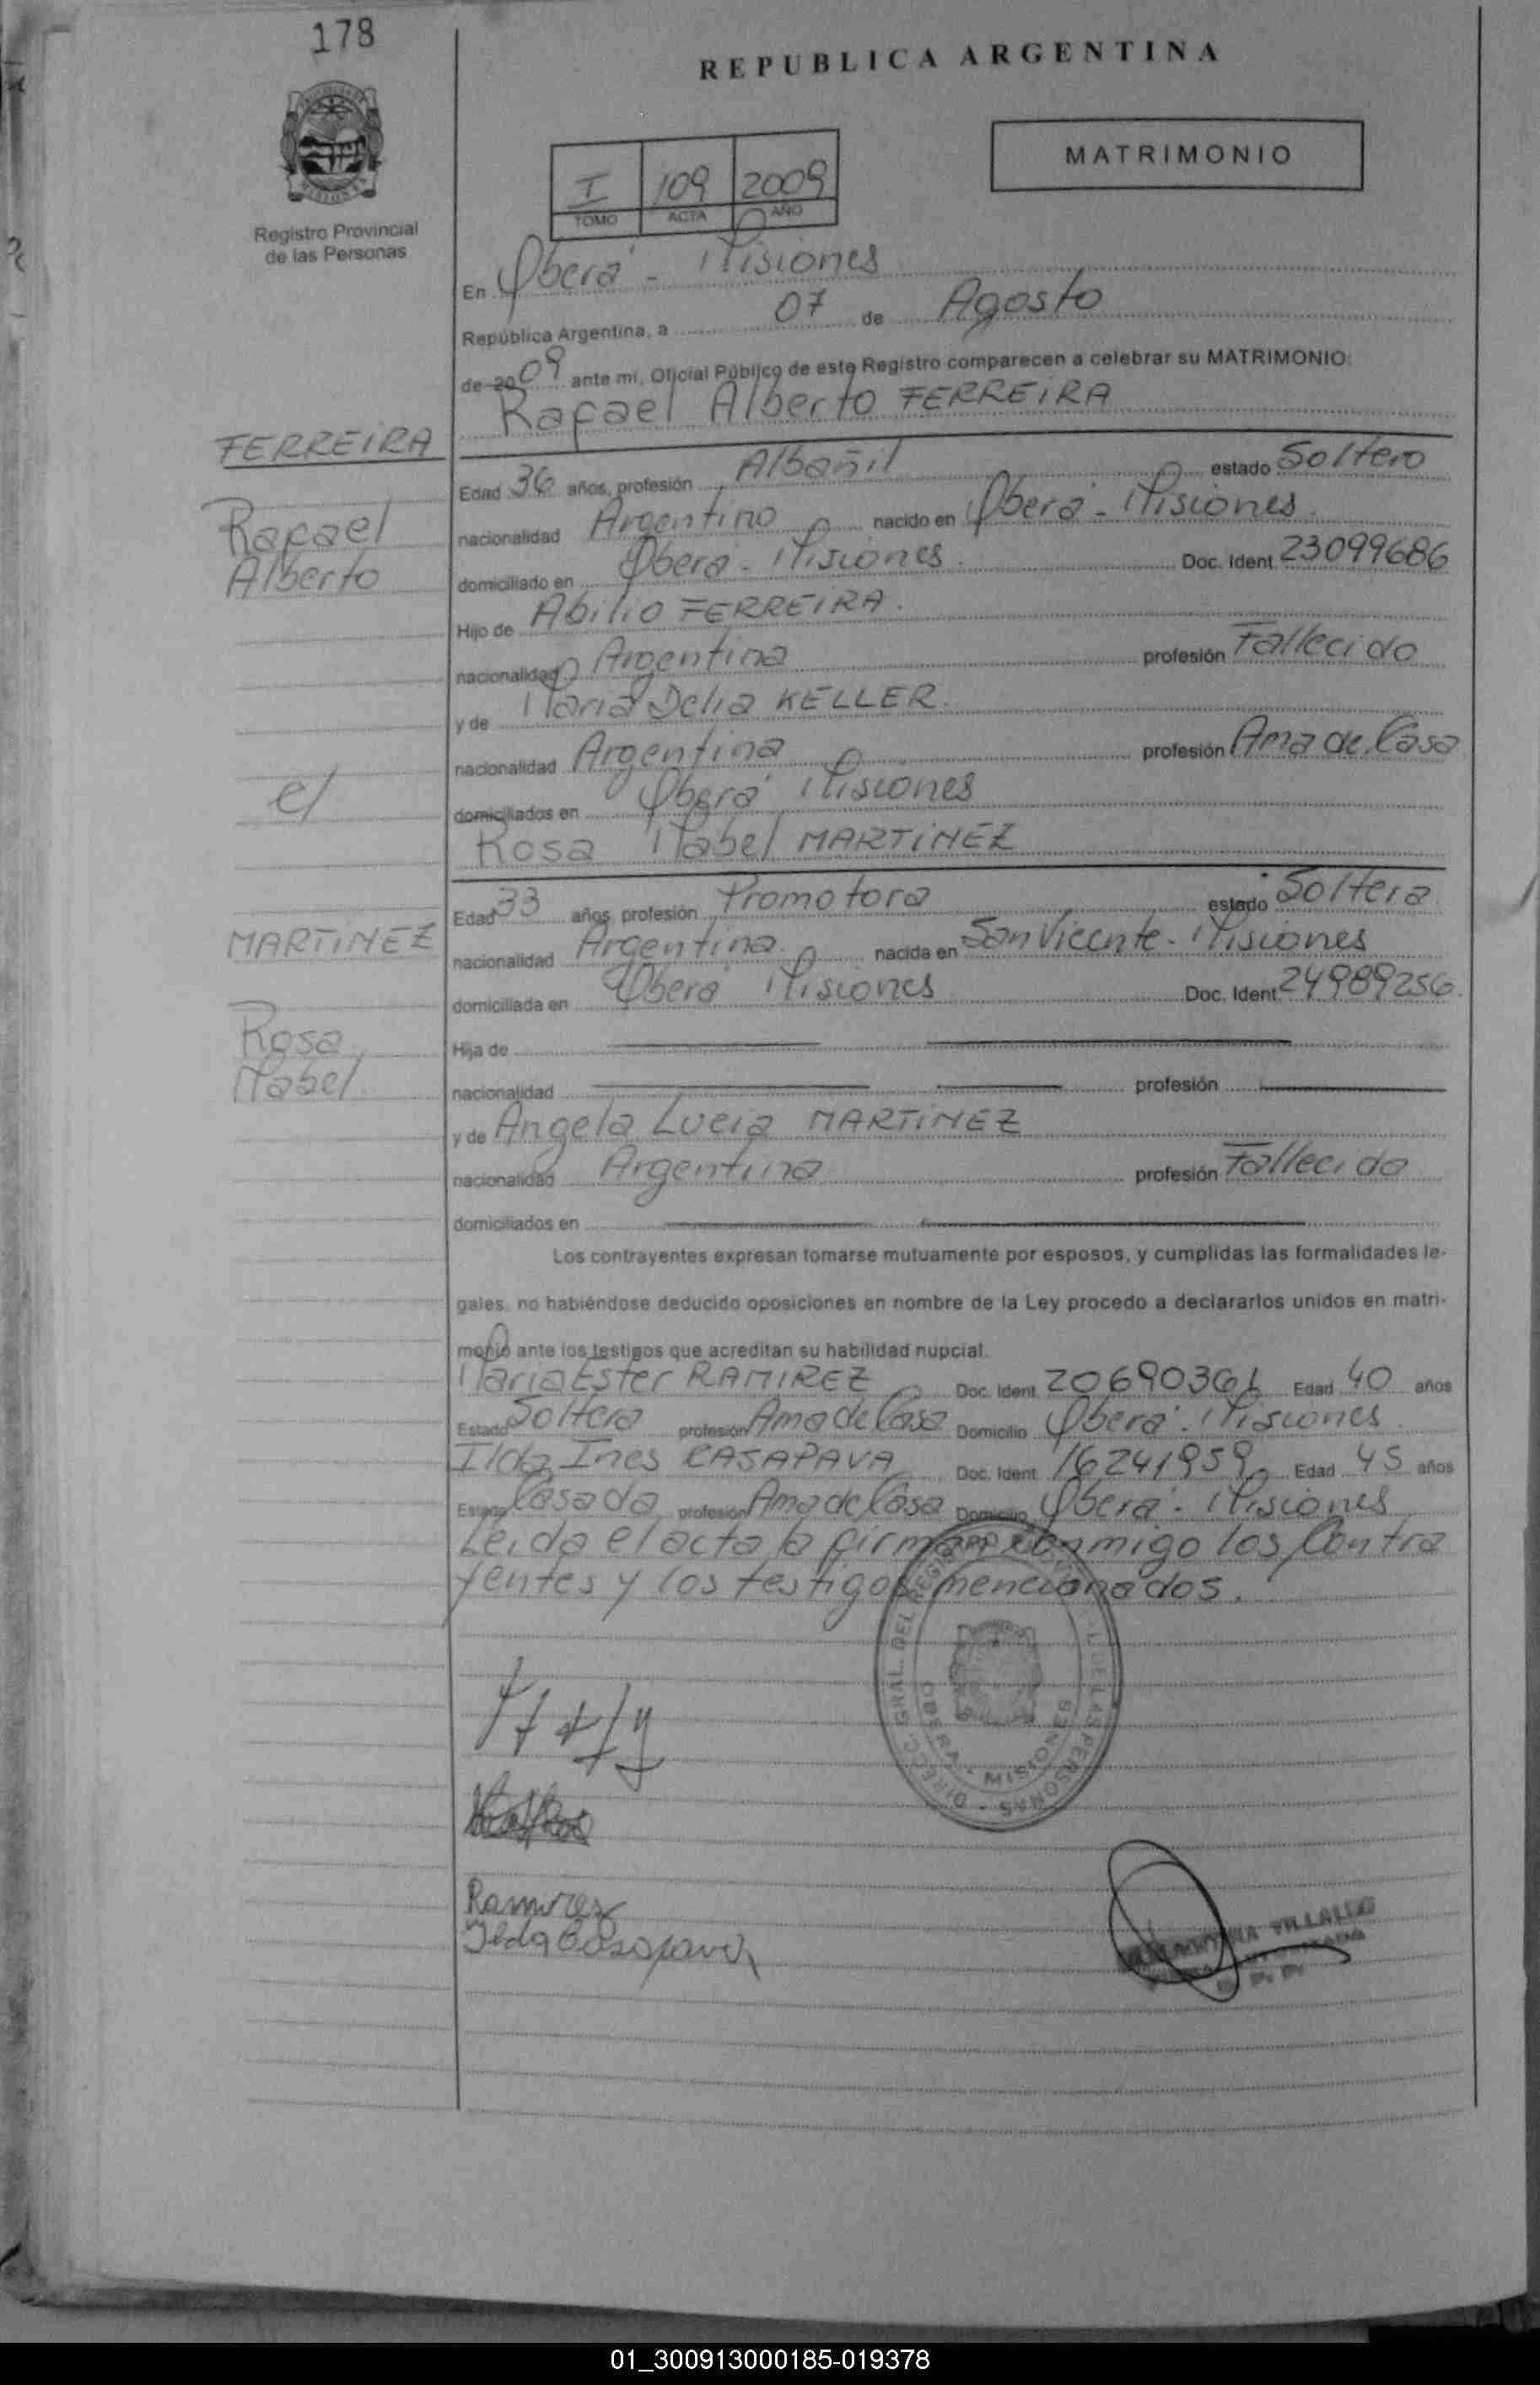 178
REPUBLICA ARGENTINA
MATRIMONIO
I 109 2009
TOMO ACTA AÑO
Registro Provincial
de las Personas
En Oberá - Misiones
República Argentina, a 07 de Agosto
de 2009 ante mi, Oficial Público de este Registro comparecen a celebrar su MATRIMONIO:
Rafael Alberto FERREIRA
FERREIRA
Rafael
Alberto
Edad 36 años, profesión Albañil estado Soltero
nacionalidad Argentino nacido en Oberá - Misiones
domiciliado en Oberá - Misiones Doc. Ident. 23099686
Hijo de Abilio FERREIRA
nacionalidad Argentina profesión Fallecido
y de Maria Delia KELLER
nacionalidad Argentina profesión Ama de Casa
domiciliados en Oberá Misiones
c/
Rosa Mabel MARTINEZ
MARTINEZ
Rosa
Mabel
Edad 33 años, profesión Promotora estado Soltera
nacionalidad Argentina nacida en San Vicente - Misiones
domiciliada en Oberá Misiones Doc. Ident. 24989256
Hija de
nacionalidad profesión
y de Angela Lucia MARTINEZ
nacionalidad Argentina profesión Fallecida
domiciliados en
Los contrayentes expresan tomarse mutuamente por esposos, y cumplidas las formalidades le-
gales, no habiéndose deducido oposiciones en nombre de la Ley procedo a declararlos unidos en matri-
monio ante los testigos que acreditan su habilidad nupcial.
Maria Ester RAMIREZ Doc. Ident. 20690361 Edad 40 años
Estado Soltera profesión Ama de Casa Domicilio Oberá - Misiones
Ilda Ines CASAPAVA Doc. Ident. 16241959 Edad 45 años
Estado Casada profesión Ama de Casa Domicilio Oberá - Misiones
Leida el acta la firman conmigo los Contra
yentes y los testigos mencionados.
DIRECC. GRAL. DEL REGISTRO DE LAS PERSONAS
OBERA - MISIONES
Ramirez
Ilda Casapava
VILLALBA
01_300913000185-019378